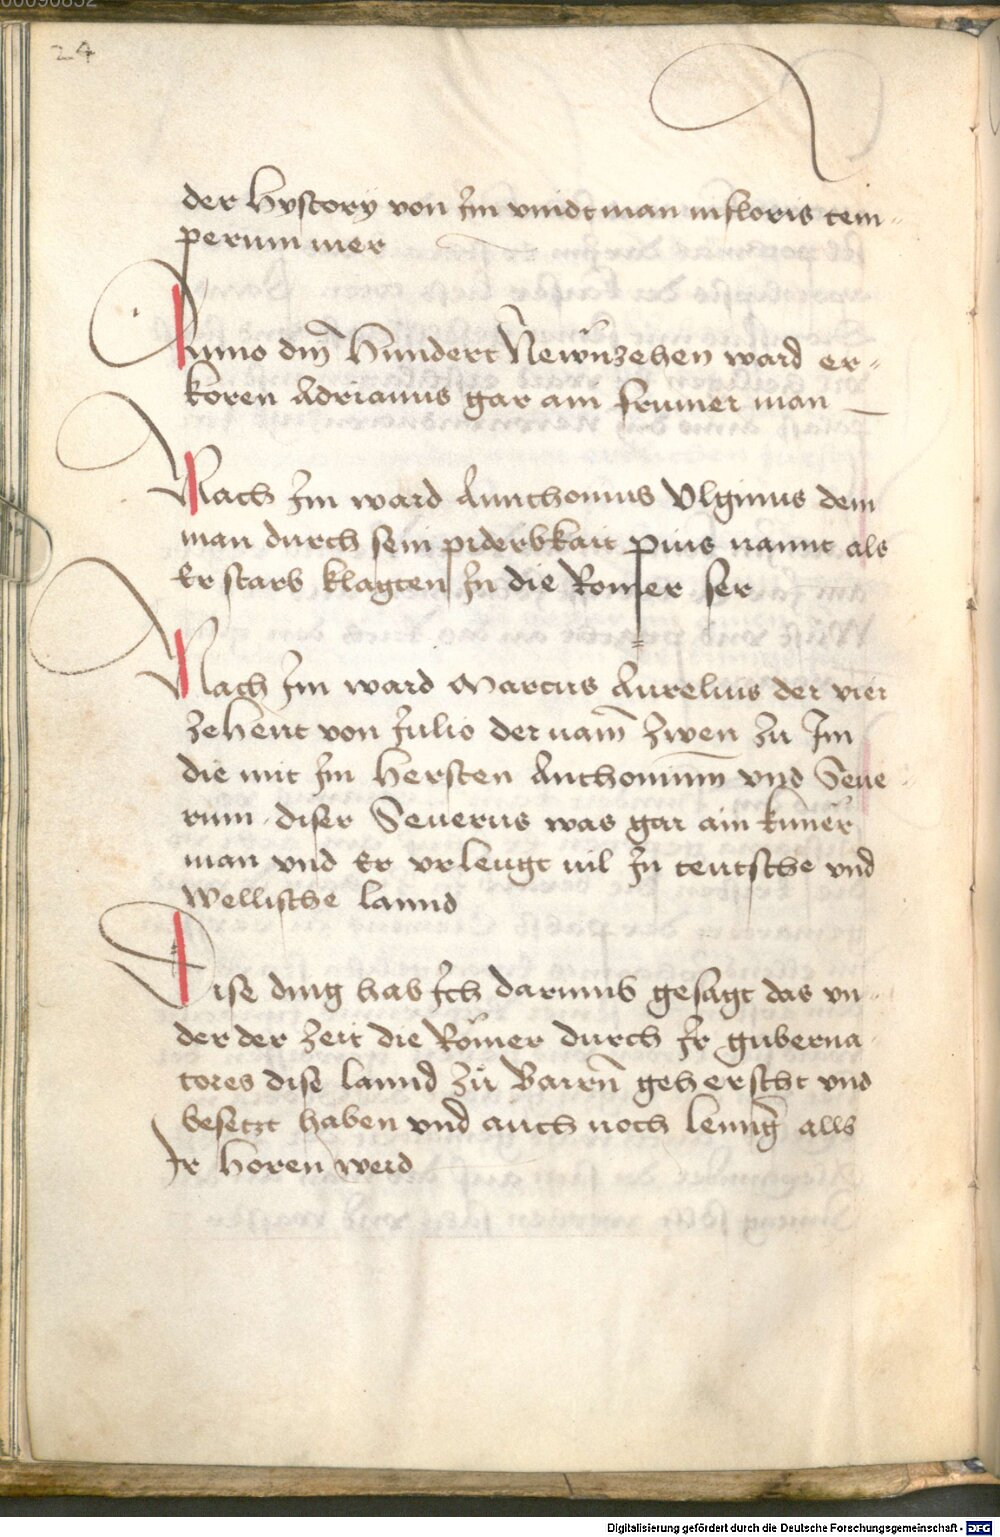 00090832
24
der hystory von Im vindt man in floris tem-
perum mer
Anno dm̄ hundert Newnzehen ward er-
koren Adrianus gar ain frumer man
Nach Im ward Annthonius Vlginus dem
man durch sein piderbkait pius nannt als
Er starb klagten In die Romer ser
Nach Im ward Marcus Aurelius der vier
zehent von Julio der nam̄ zwen zu Im
die mit Im hersten Anthonium vnd Seue-
rum diser Seuerus was gar ain kuner
man vnd Er vrleugt vil In teutsche vnd
wellische lannd
Dise ding hab Ich darumb gesagt das vn-
der der zeit die Römer durch Ir guberna-
tores dise lannd zu Bairn̄ geherscht vnd
besetzt haben vnd auch noch lennḡ alls
Ir horen werd
Digitalisierung gefördert durch die Deutsche Forschungsgemeinschaft - DFG